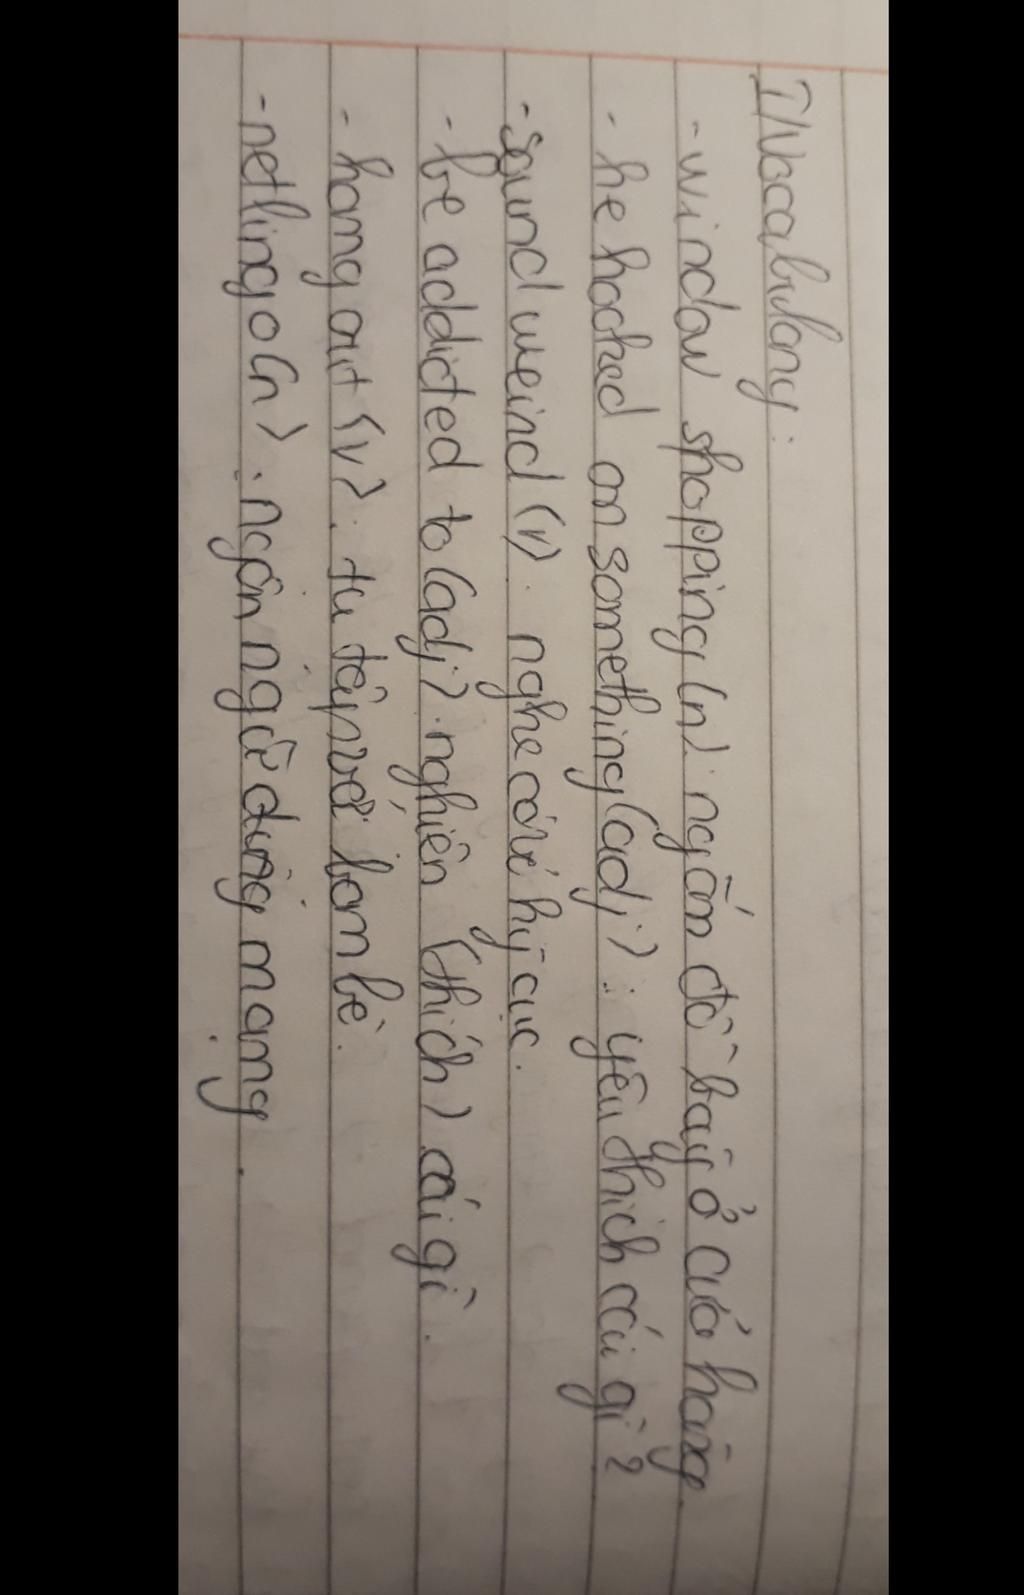 I/Vocabulary:
- window shopping (n): ngắm đồ bày ở cửa hàng
- be hooked on something (adj): yêu thích cái gì?
- sound weird (v): nghe có vẻ kỳ cục.
- be addicted to (adj): nghiện (thích) cái gì.
- hang out (v): tụ tập với bạn bè.
- netlingo (n): ngôn ngữ dùng mạng.